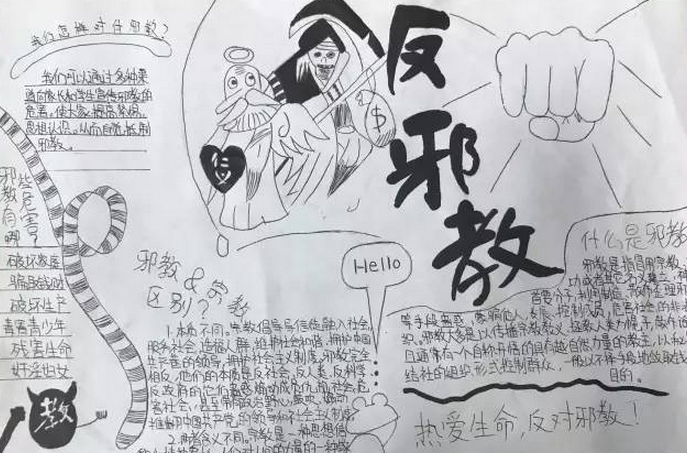 我们怎样对付邪教?
我们可以通过多种渠
道向家长和学生宣传邪教的
危害,使大家提高警惕,
思想认识。从而自觉抵制
邪教。
仁义
$
反
邪
教
邪教有哪
些危害?
破坏家庭
骗取钱财
破坏生产
毒害青少年
残害生命
奸淫妇女
教
邪教&宗教
区别?
Hello
1.本质不同。宗教倡导信徒融入社会,
服务社会,造福人群,维护社会和谐,拥护中国
共产党的领导,拥护社会主义制度,邪教完全
相反,他们的本质是反社会、反人类、反科学、
2.两者含义不同。宗教是一种思想信
什么是邪教
邪教是指冒用宗教、
等手段蛊惑、蒙骗他人,发展、控制成员,危害社会的非法
织。邪教大多是以传播宗教教义、拯救人类为幌子,
且通常有一个自称开悟的具有超自然力量的教主,以
结社的组织形式控制群众,一般以不择手段地敛取钱
目的。
热爱生命,反对邪教!